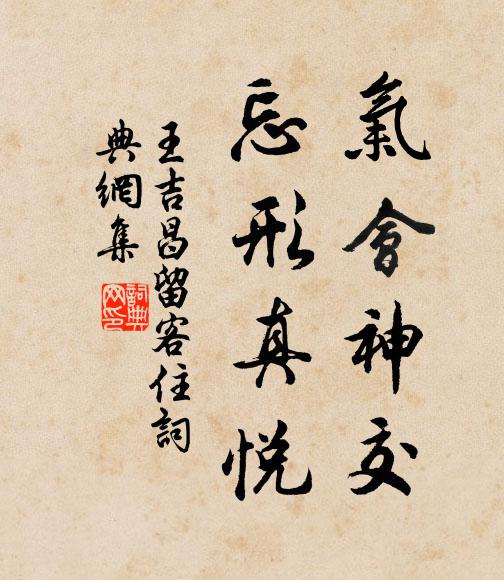 氣會神交
忘形真悅
王吉昌留客住詞
典網集
詞典
网印